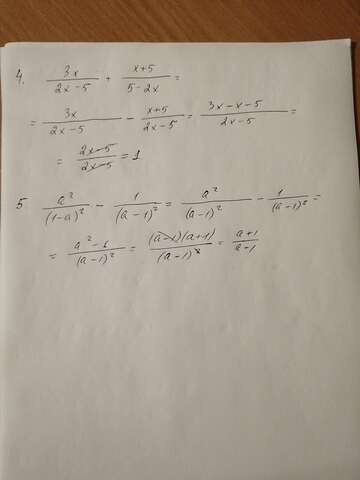 4. 3x/(2x-5) + (x+5)/(5-2x) =
= 3x/(2x-5) - (x+5)/(2x-5) = (3x-x-5)/(2x-5) =
= (2x-5)/(2x-5) = 1
5 a²/(1-a)² - 1/(a-1)² = a²/(a-1)² - 1/(a-1)² =
= (a²-1)/(a-1)² = (a-1)(a+1)/(a-1)² = (a+1)/(a-1)